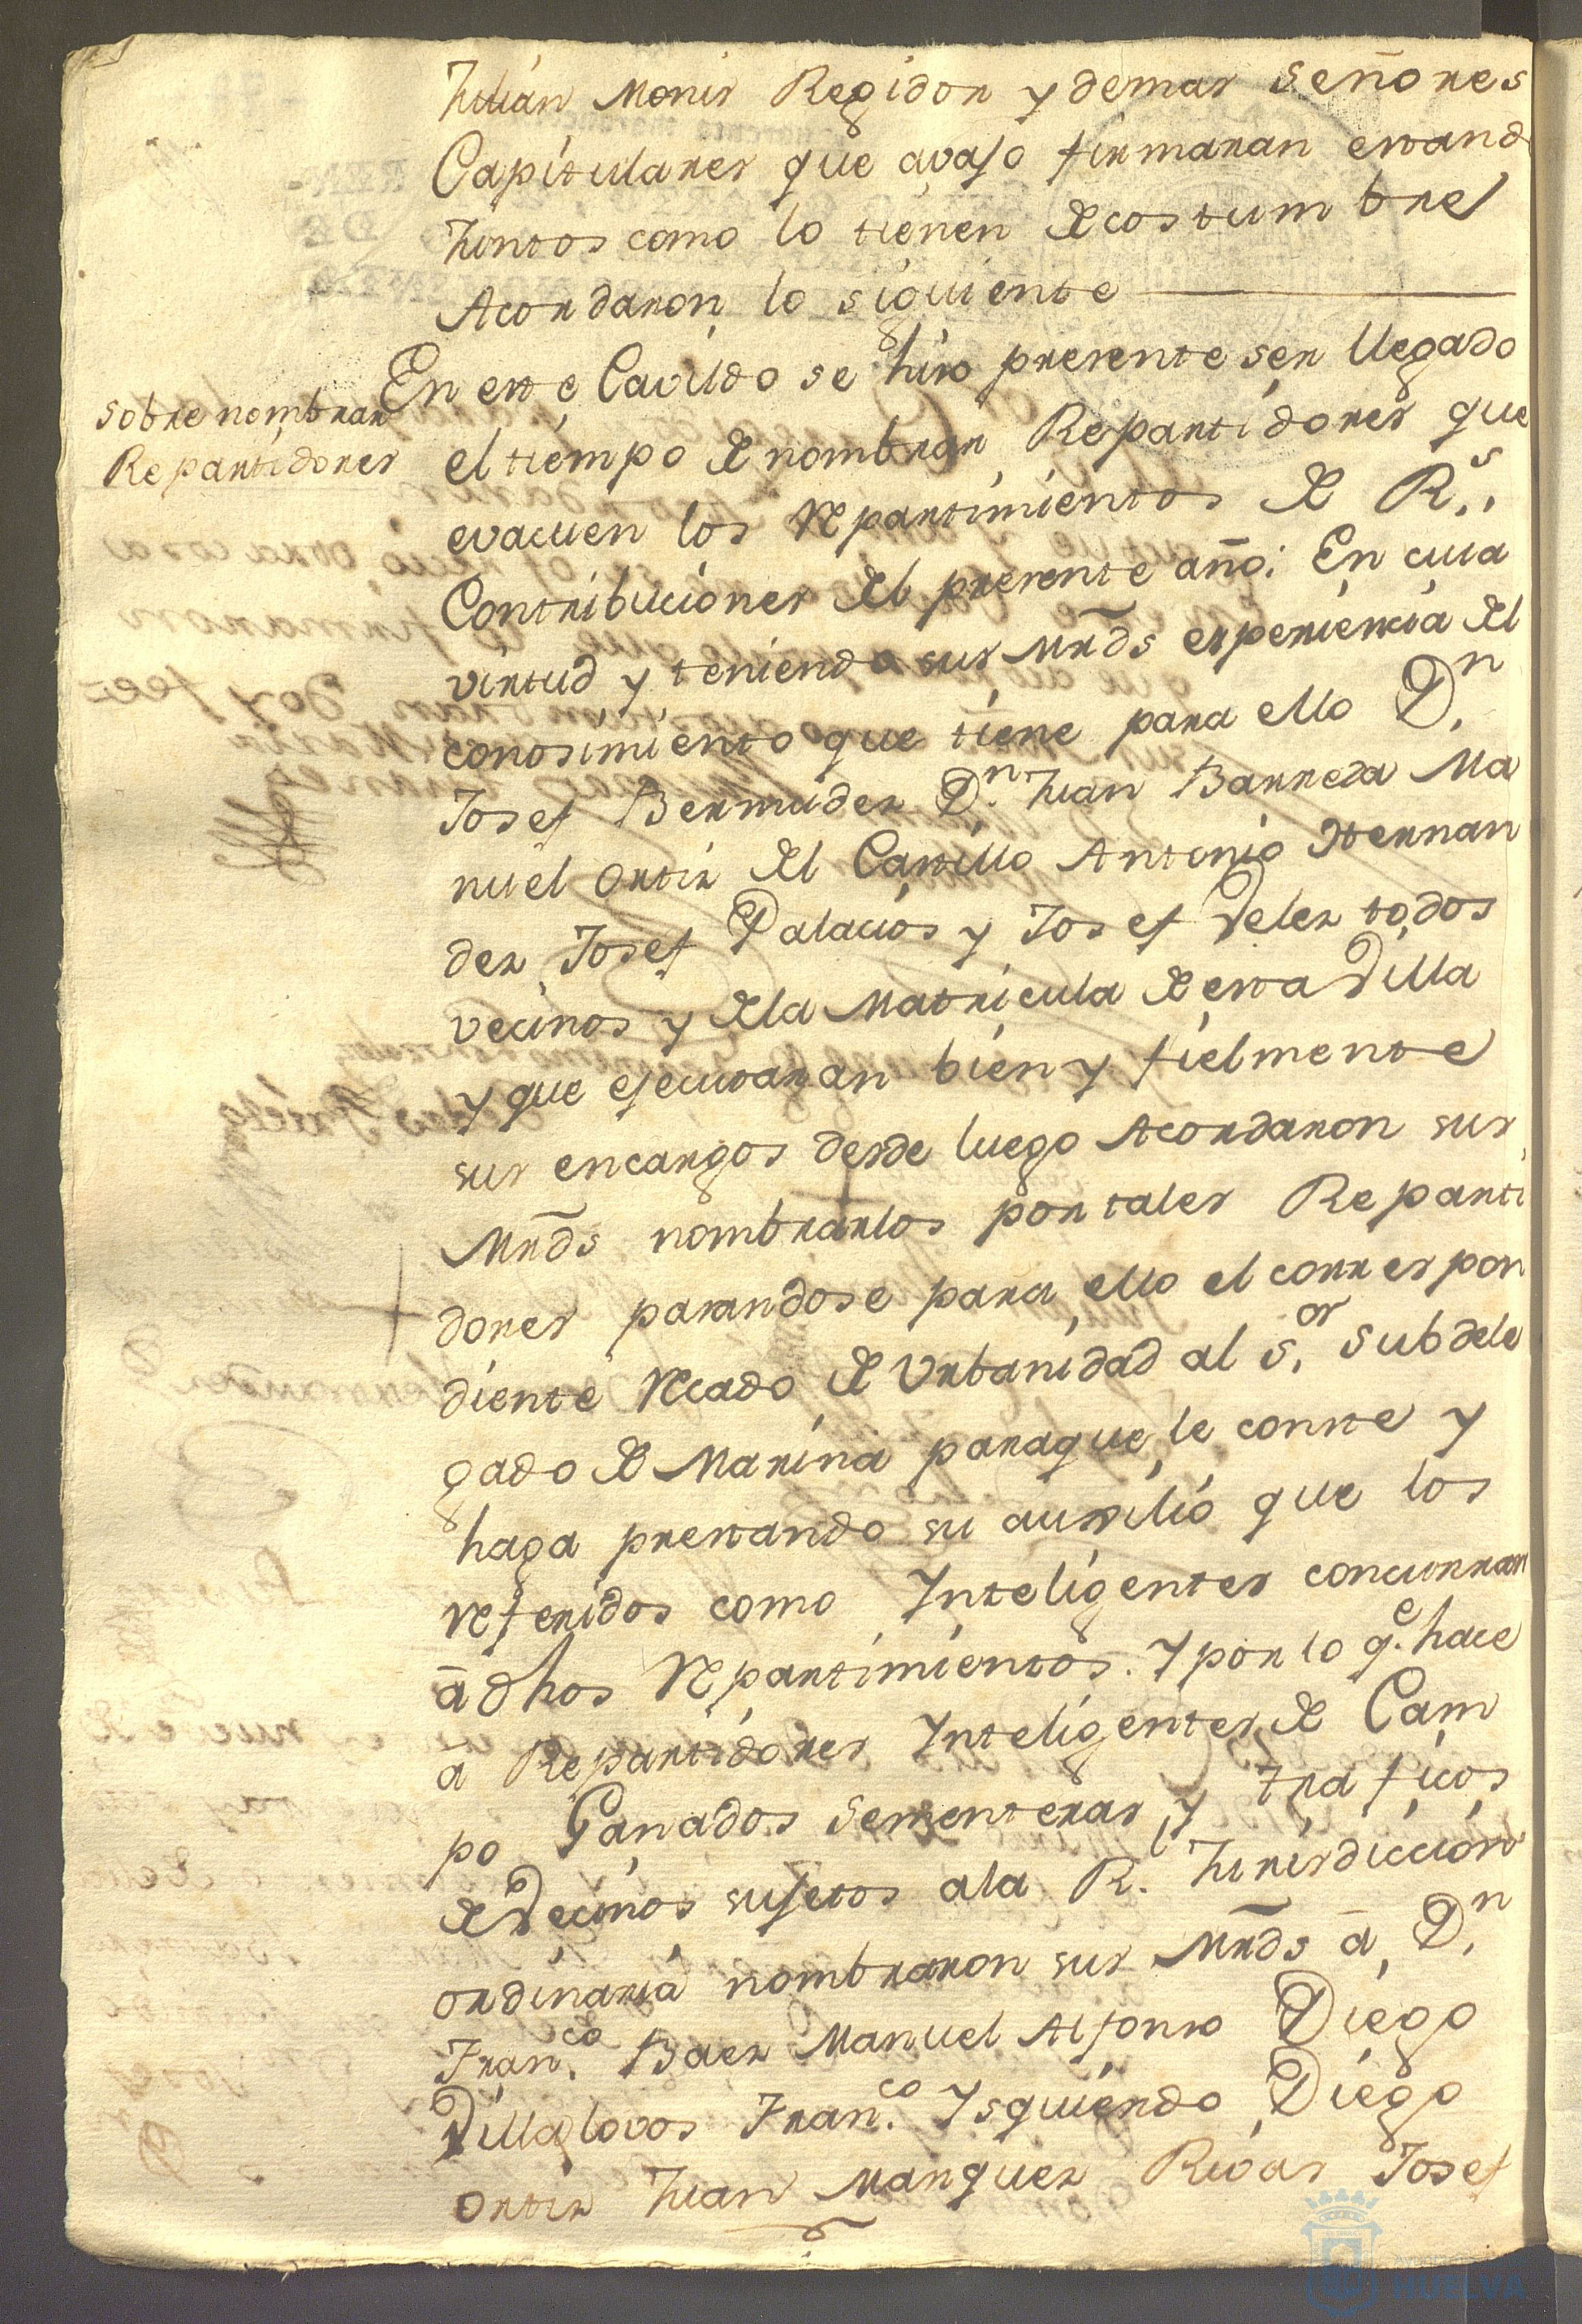 Julian Monis Regidor y demas Señores
Capitulares que avajo firmaran estand
Juntos como lo tienen de costumbre
Acordaron lo siguiente
En este Cavildo se hizo presente ser llegado
sobre nombrar
Repartidores
el tiempo de nombrar Repartidores que
evacuen los repartimientos de R.s
Contribuciones del presente año: En cuia
virtud y teniendo sus Mrds esperiencia del
conosimiento que tiene para ello D.n
Josef Bermudez D.n Juan Barreda Ma
nuel Ortiz del Castillo Antonio Hernan
dez Josef Palacios y Josef Velez todos
vecinos y de la Matricula de esta Villa
y que ejecutaran bien y fielmente
sus encargos desde luego Acordaron sus
Mrds nombrarlos por tales Reparti
dores pasandose para ello el correspon
diente recado de Urbanidad al S.or Subdele
gado de Marina paraque le conste y
haga prestando su auxilio que los
referidos como Inteligentes concurran
a dhos repartimientos. Y por lo q.e hace
a Repartidores Inteligentes de Cam
po Ganados sementeras y traficos
de Vecinos sujetos a la R.l Jurisdiccion
ordinaria nombraron sus Mrds a D.n
Fran.co Baez Manuel Alfonso Diego
Villalovos Fran.co Ysquierdo Diego
Ortiz Juan Marquez Rivas Josef
HUELVA